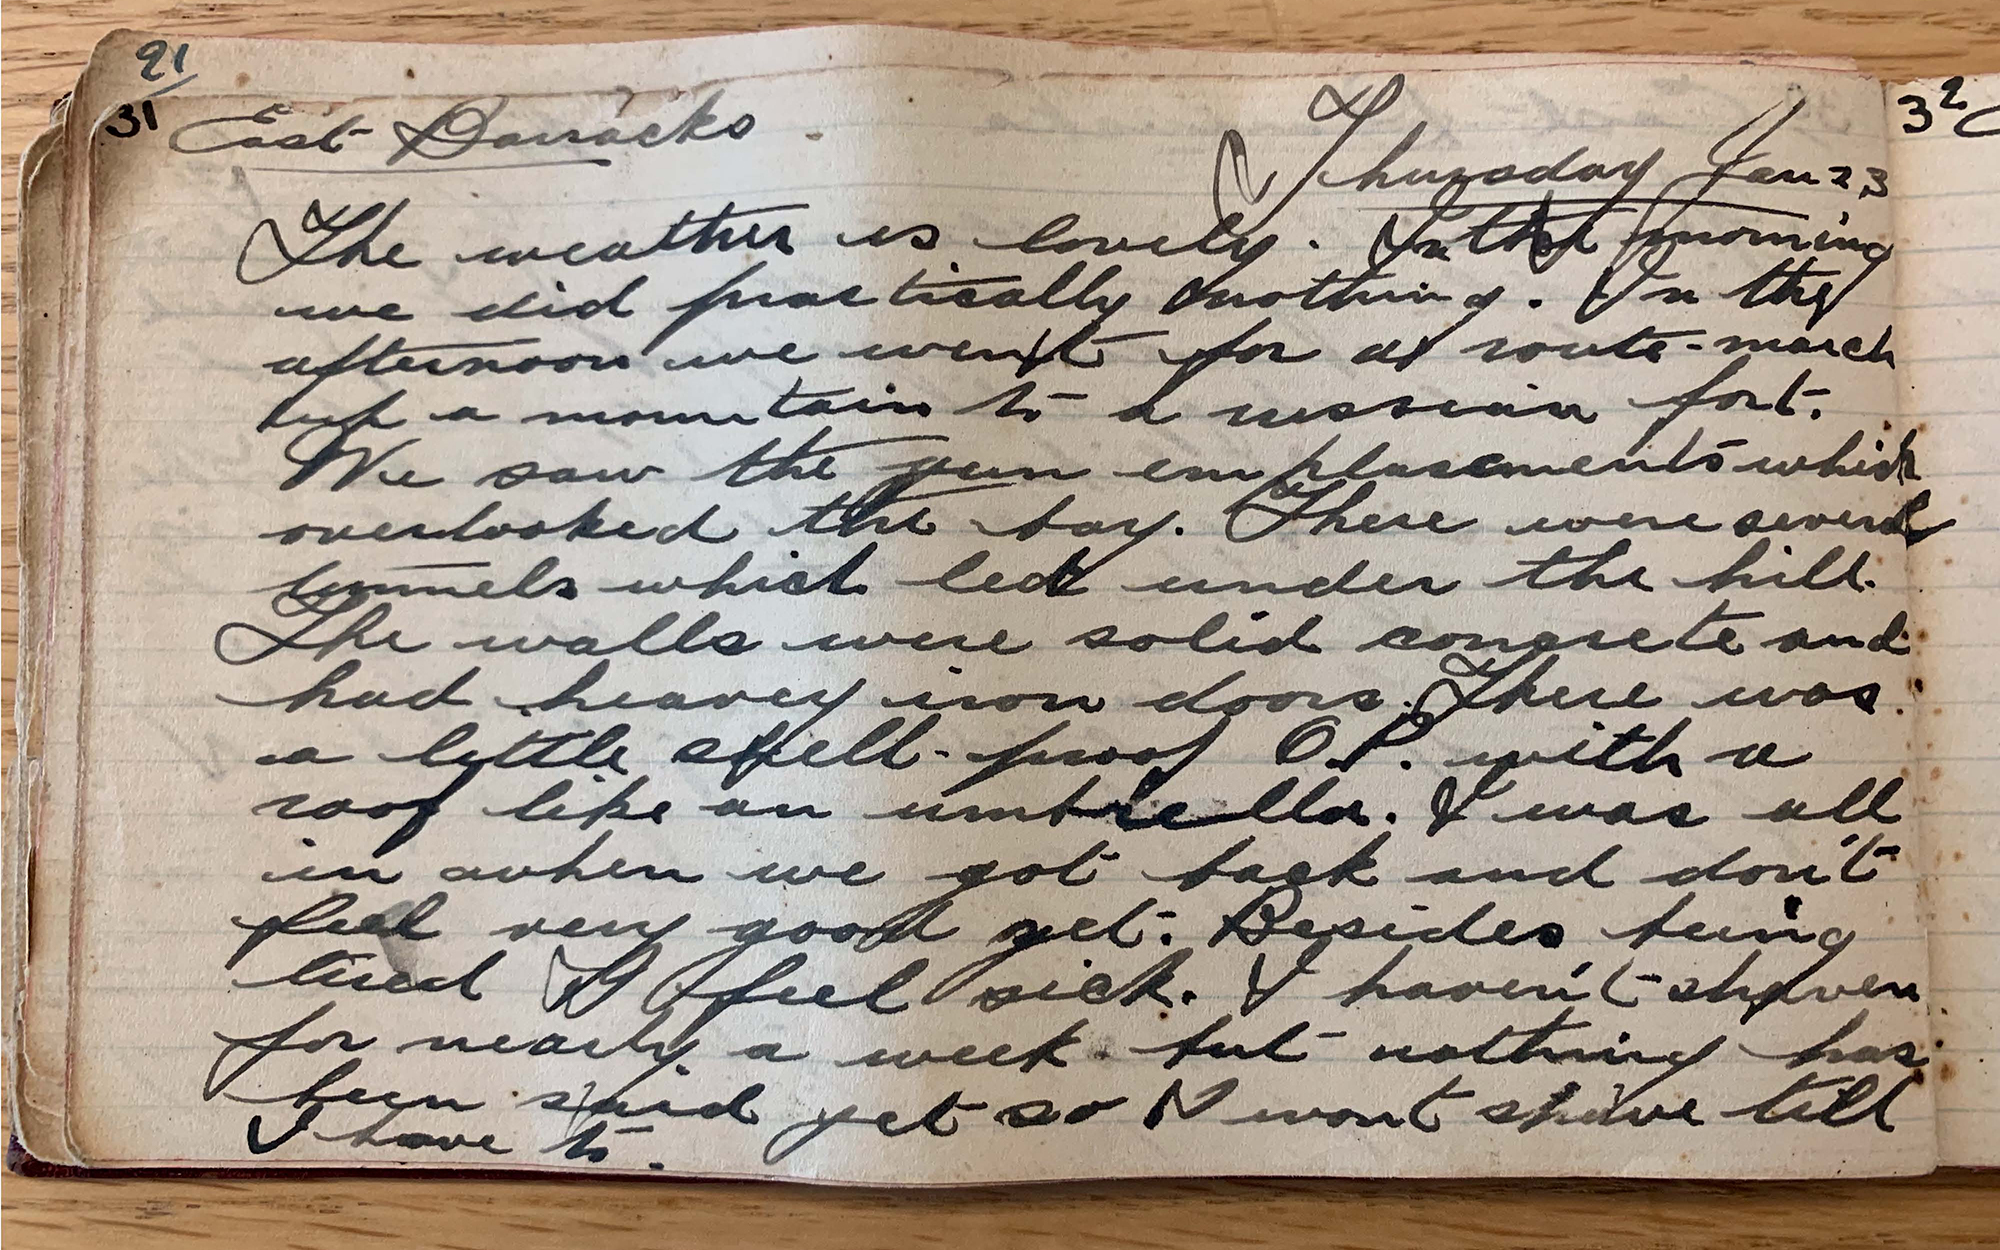 21
31 East Barracks
32
Thursday Jan 23
The weather is lovely. In the morning
we did practically nothing. In the
afternoon we went for a route-march
up a mountain to a russian fort.
We saw the gun emplasements which
overlooked the bay. There were several
tunnels which led under the hill.
The walls were solid concrete and
had heavey iron doors. There was
a little shell-proof O.P. with a
roof like an umbrella. I was all
in when we got back and don't
feel very good yet. Besides being
tired I feel sick. I haven't shaven
for nearly a week but nothing has
been said yet so I wont shave till
I have to.